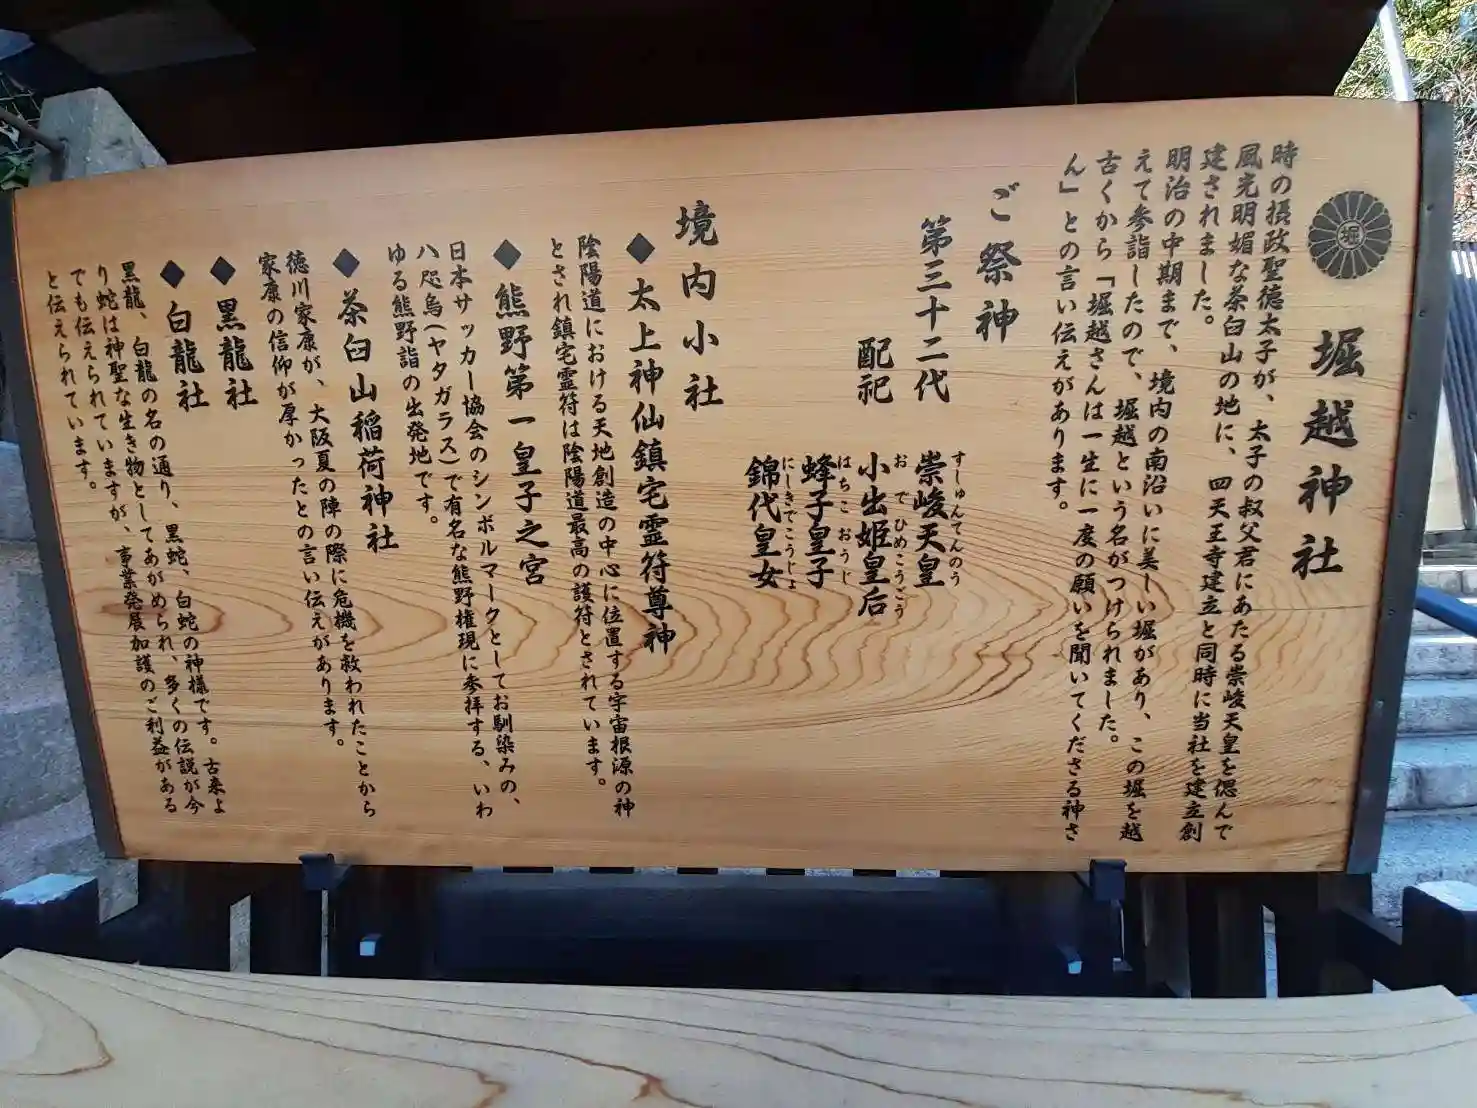 堀
堀越神社
時の摂政聖徳太子が、太子の叔父君にあたる崇峻天皇を偲んで
風光明媚な茶臼山の地に、四天王寺建立と同時に当社を建立創
建されました。
明治の中期まで、境内の南沿いに美しい堀があり、この堀を越
えて参詣したので、堀越という名がつけられました。
古くから「堀越さんは一生に一度の願いを聞いてくださる神さ
ん」との言い伝えがあります。
ご祭神
第三十二代 崇峻天皇
すしゅんてんのう
配祀 小出姫皇后
おでひめこうごう
蜂子皇子
はちこおうじ
錦代皇女
にしきでこうじょ
境内小社
◆太上神仙鎮宅霊符尊神
陰陽道における天地創造の中心に位置する宇宙根源の神
とされ鎮宅霊符は陰陽道最高の護符とされています。
◆熊野第一皇子之宮
日本サッカー協会のシンボルマークとしてお馴染みの、
八咫烏(ヤタガラス)で有名な熊野権現に参拝する、いわ
ゆる熊野詣の出発地です。
◆茶臼山稲荷神社
徳川家康が、大阪夏の陣の際に危機を救われたことから
家康の信仰が厚かったとの言い伝えがあります。
◆黒龍社
◆白龍社
黒龍、白龍の名の通り、黒蛇、白蛇の神様です。古来よ
り蛇は神聖な生き物としてあがめられ、多くの伝説が今
でも伝えられていますが、事業発展加護のご利益がある
と伝えられています。